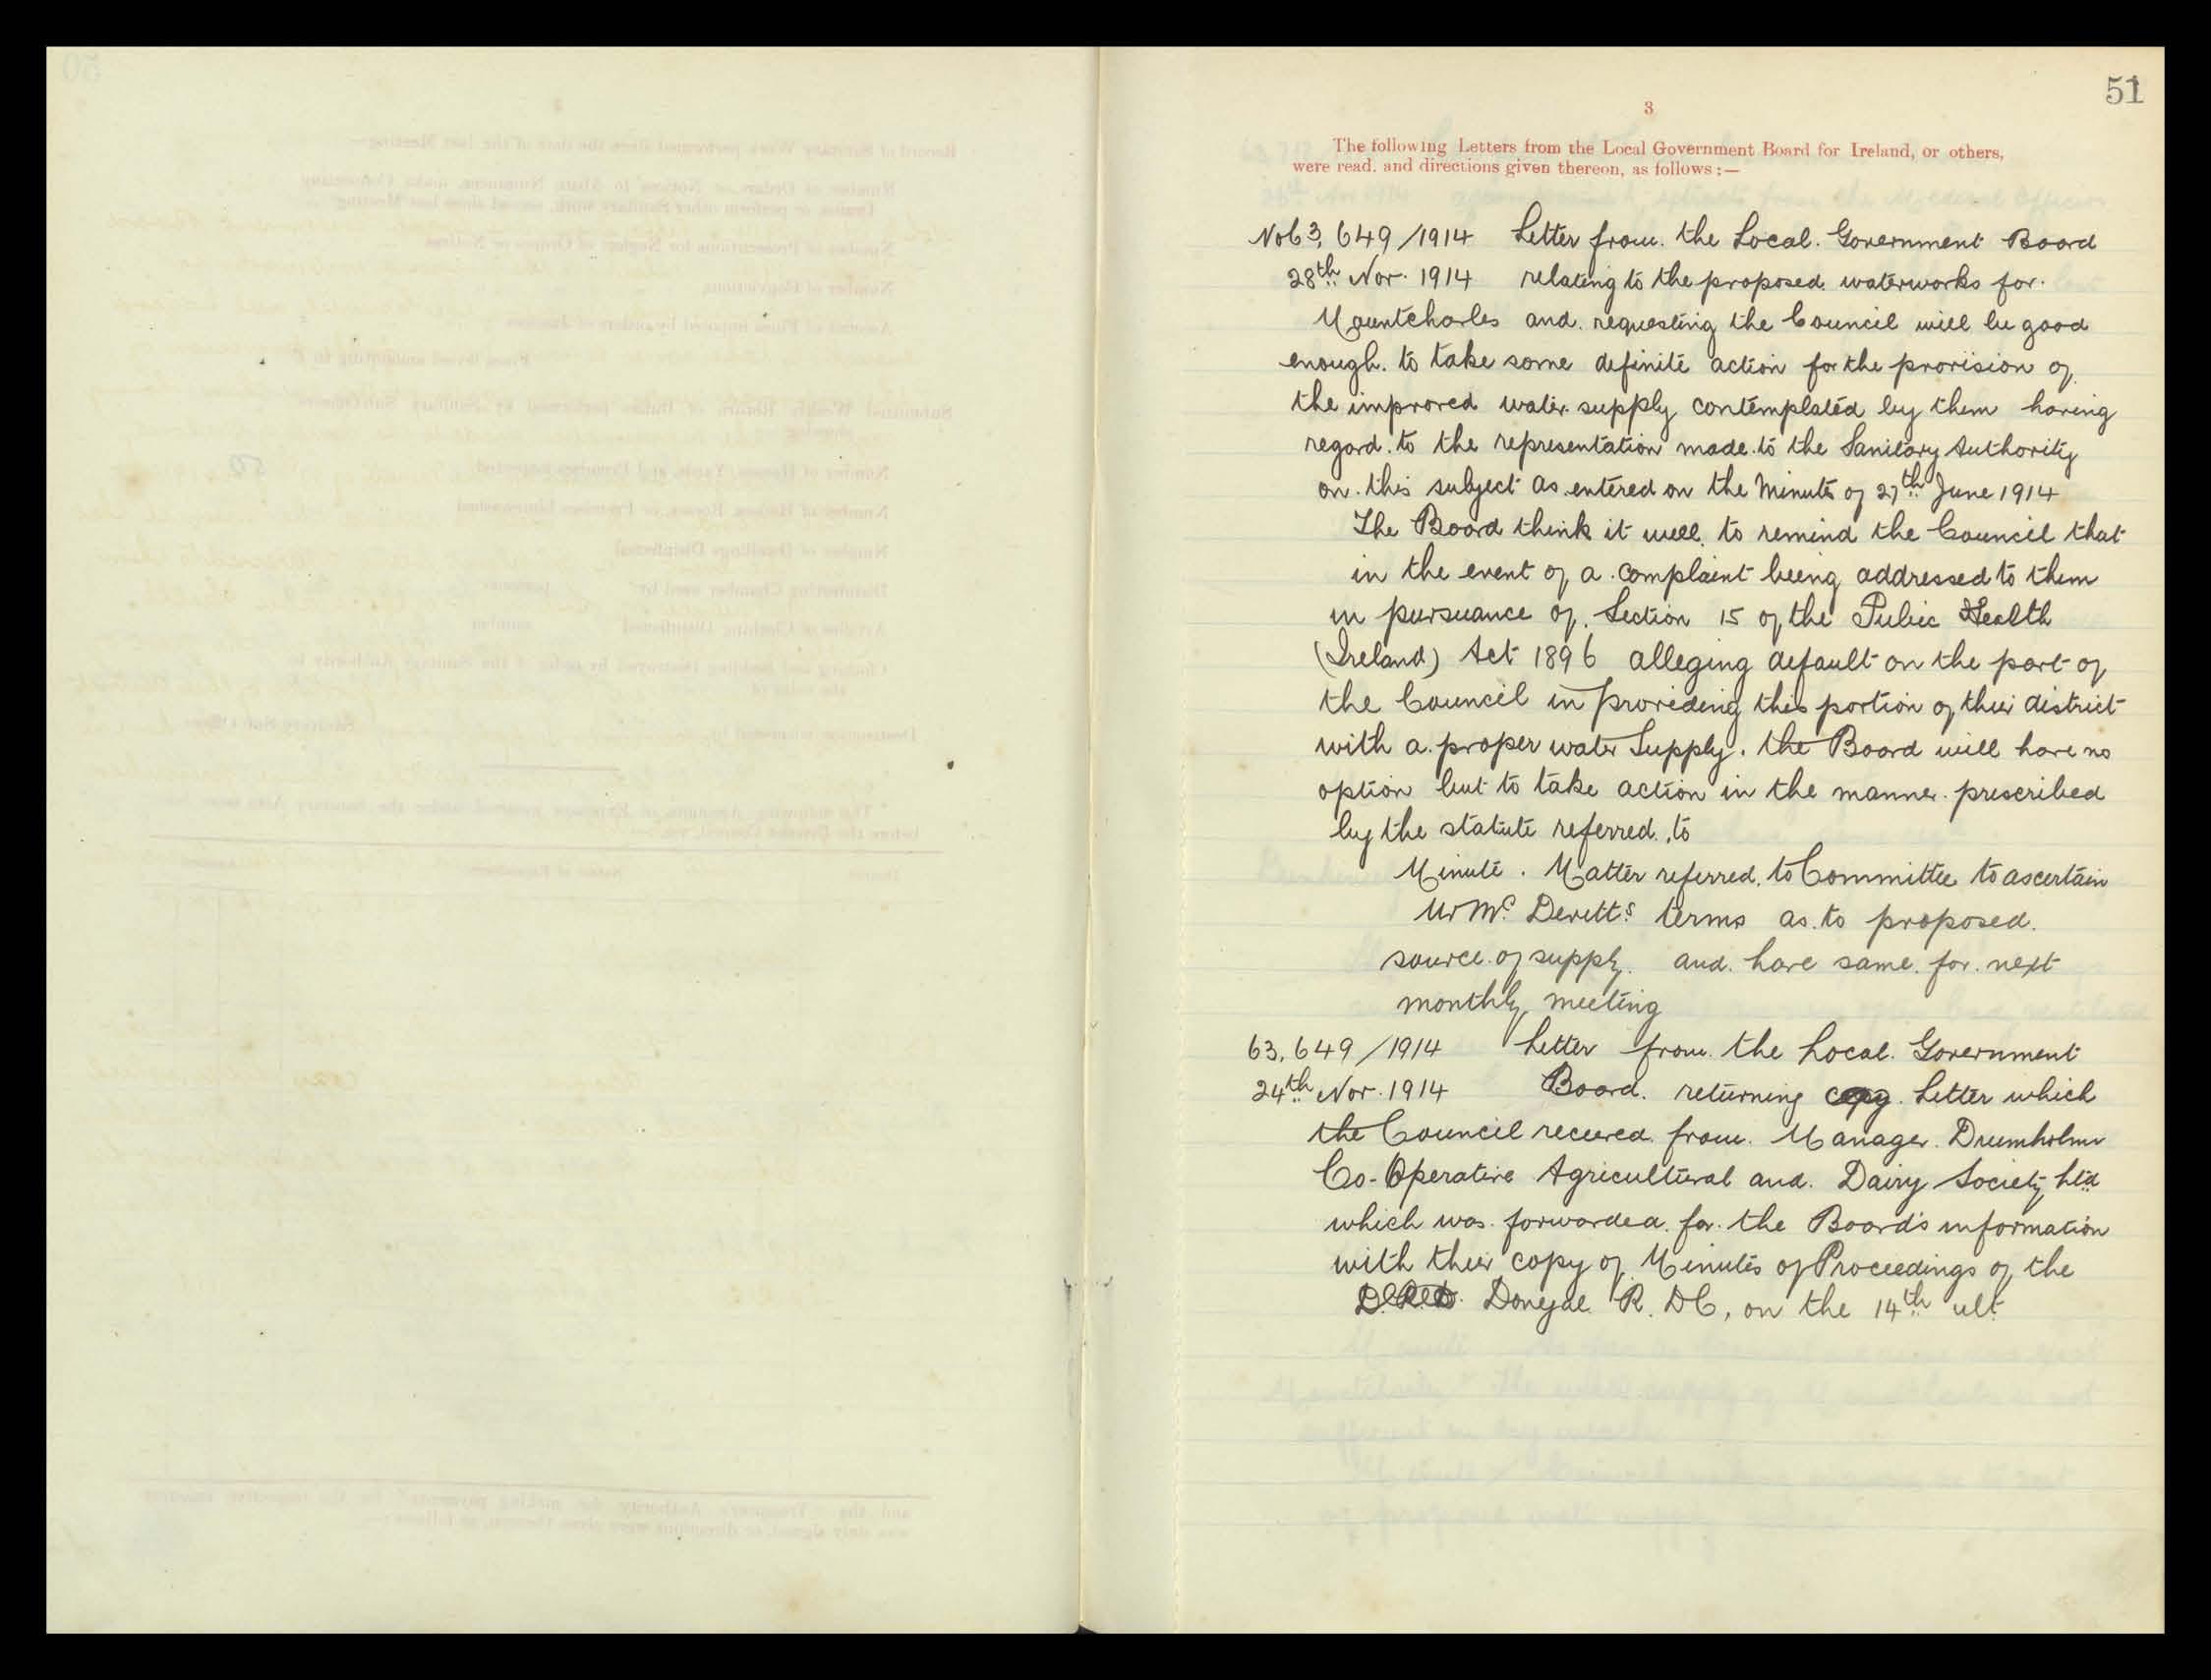 51
3
The following Letters from the Local Government Board for Ireland, or others,
were read, and directions given thereon, as follows :—
No 63,649/1914 Letter from the Local Government Board
28th Nov. 1914 relating to the proposed waterworks for
Mountcharles and requesting the Council will be good
enough to take some definite action for the provision of
the improved water supply contemplated by them having
regard to the representation made to the Sanitary Authority
on this subject as entered on the Minutes of 27th June 1914
The Board think it well to remind the Council that
in the event of a complaint being addressed to them
in pursuance of Section 15 of the Public Health
(Ireland) Act 1896 alleging default on the part of
the Council in providing this portion of their district
with a proper water Supply. the Board will have no
option but to take action in the manner prescribed
by the statute referred to
Minute. Matter referred to Committee to ascertain
Mr Mc Devitts terms as to proposed
source of supply and have same for next
monthly meeting
63,649/1914 Letter from the Local Government
24th Nov. 1914 Board returning copy Letter which
the Council received from Manager Drumholm
Co-Operative Agricultural and Dairy Society Ltd
which was forwarded for the Board's information
with their copy of Minutes of Proceedings of the
Donegal R. D C, on the 14th ult